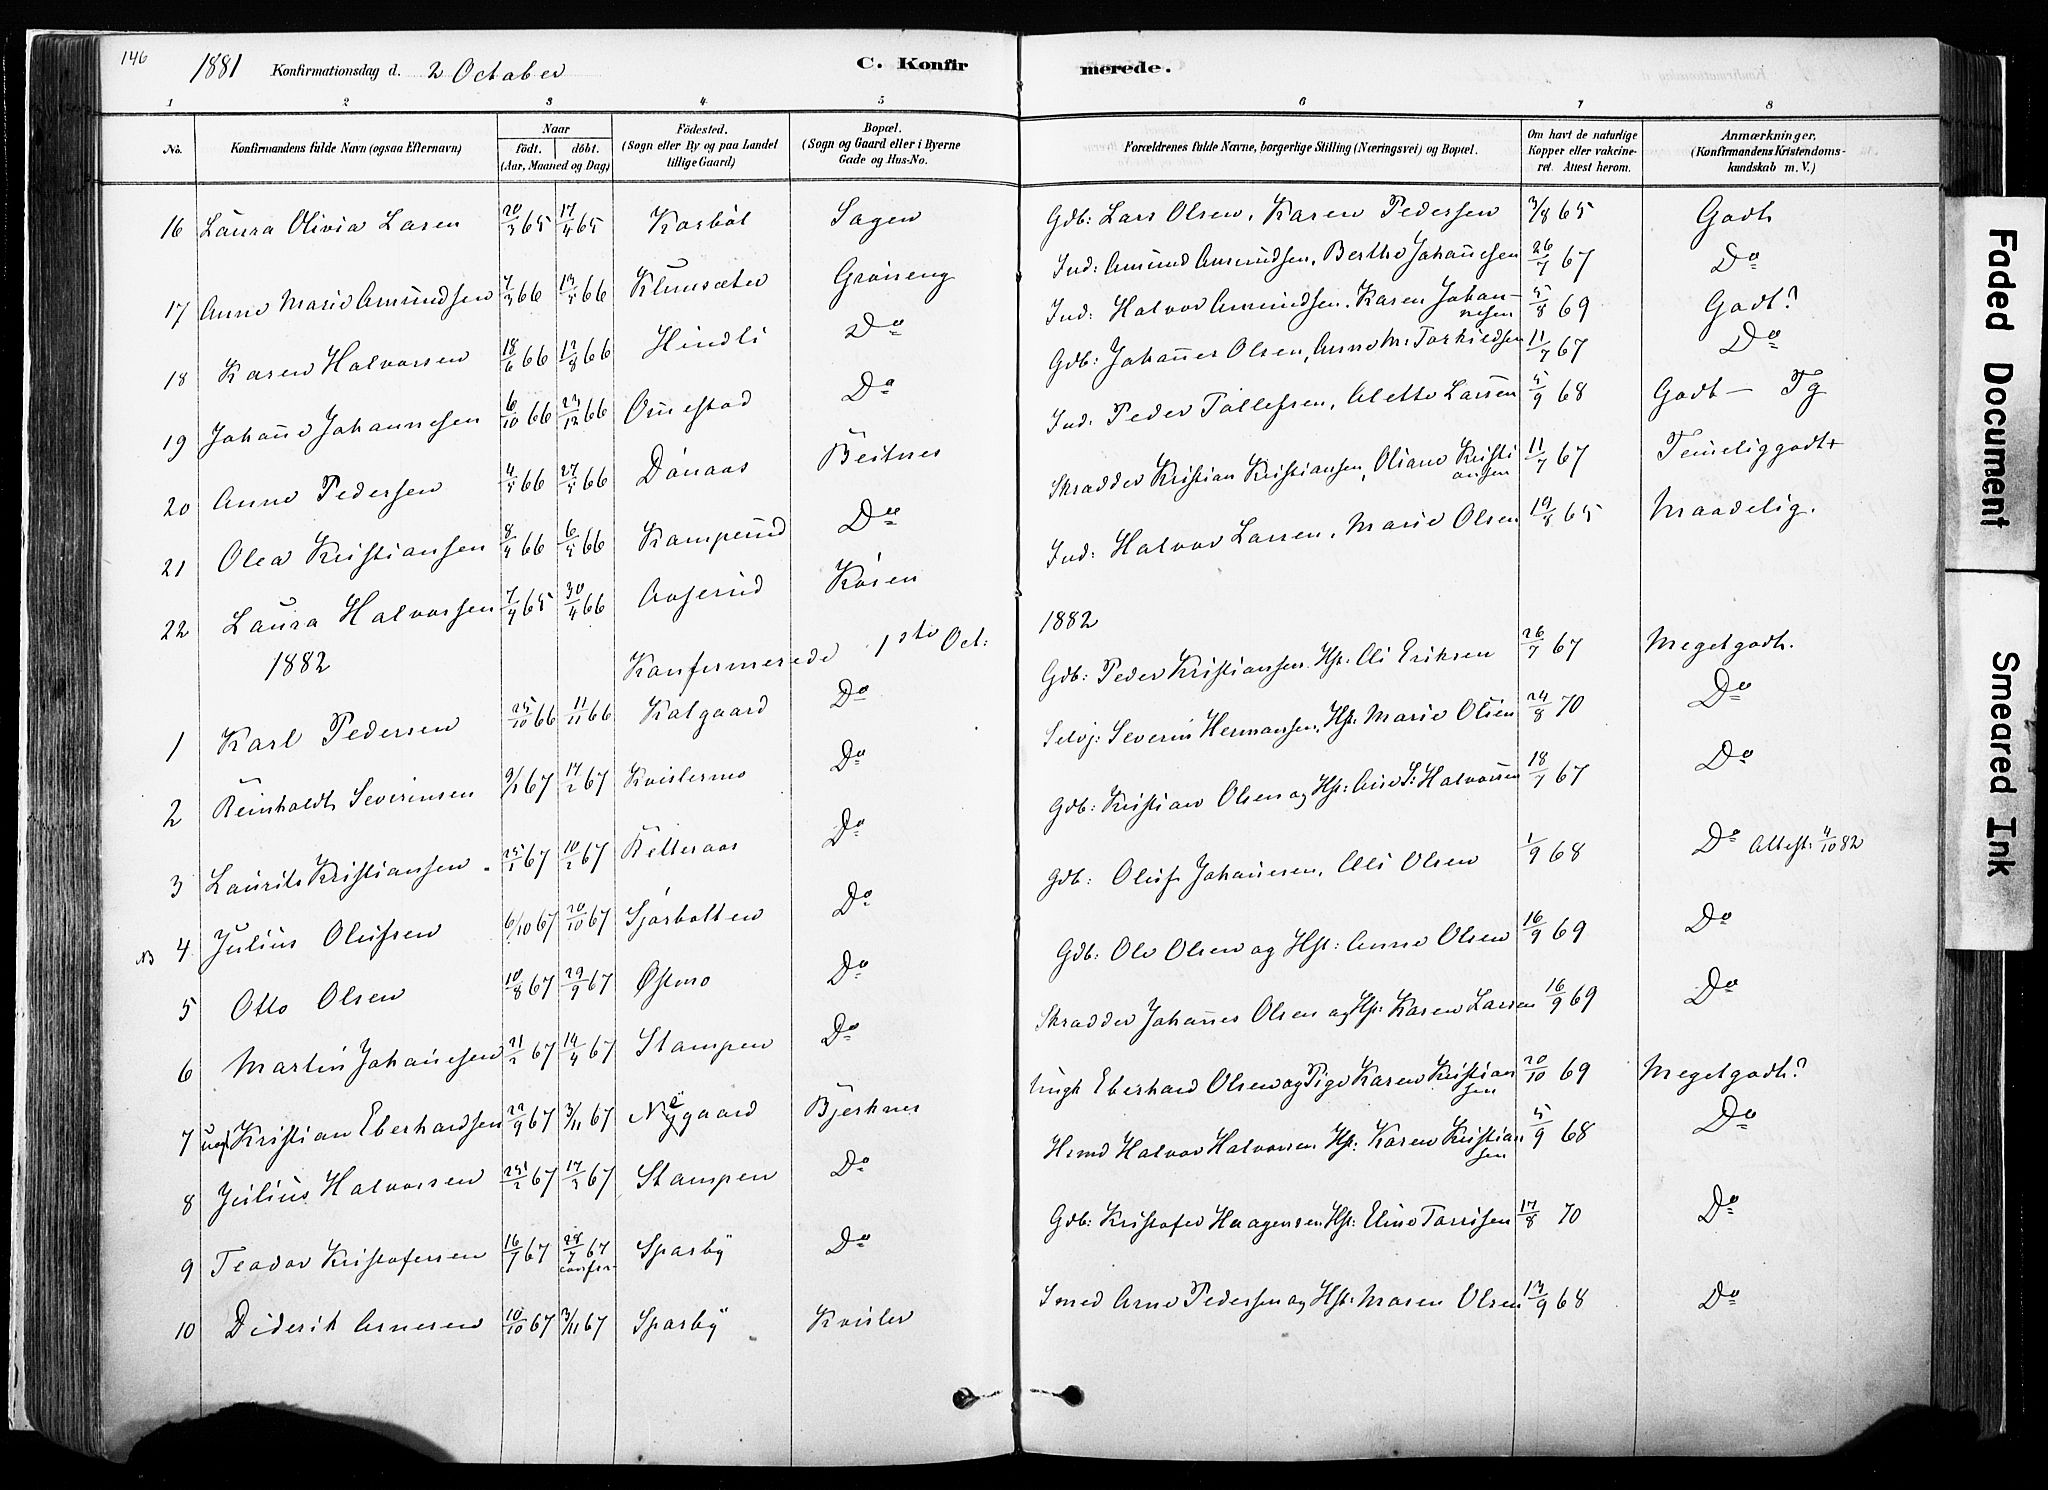 146
1881 Konfirmationsdag d. 2 October
C. Konfirmerede.
1 2 3 4 5 6 7 8
No.
Konfirmandens fulde Navn (ogsaa Efternavn)
Naar
födt. döbt.
(Aar, Maaned og Dag)
Födested.
(Sogn eller By og paa Landet
tillige Gaard)
Bopæl.
(Sogn og Gaard eller i Byerne
Gade og Hus-No.
Forældrenes fulde Navne, borgerlige Stilling (Næringsvei) og Bopæl.
Om havt de naturlige
Kopper eller vakcine-
ret. Attest herom.
Anmærkninger.
(Konfirmandens Kristendoms-
kundskab m. V.)
16 Laura Olivia Lasen 20/3 65 17/4 65 Kosböl Sagen Gdb: Lars Olsen, Karen Pedersen 3/8 65 Godt
17 Anne Marie Amundsen 7/3 66 13/5 66 Klunsæter Gröneng Ind: Amund Amundsen, Berthe Johannesen 26/7 67 Do
18 Karen Halvorsen 18/6 66 12/8 66 Hindli Do Ind: Halvor Amundsen, Karen Johan-
nesen 5/8 69 Godt?
19 Johanne Johannesen 6/10 66 23/12 66 Do Gdb: Johannes Olsen, Anne M. Torkildsen 11/7 67 Do
20 Anne Pedersen 4/5 66 27/5 66 Dönaas Beitnes Ind. Peder Tollefsen, Alette Larsen 5/9 68 Godt — Tg
21 Olea Kristiansen 8/4 66 6/5 66 Kamperud Do Skradder Kristian Kristiansen, Oliane Kristi
ansen 11/7 67 Temeliggodt+
22 Laura Halvorsen 7/4 65 30/4 66 Aaserud Kösen Ind: Halvor Larsen, Marie Olsen 19/8 65 Maadelig.
1882 Konfermerede 1ste Oct: 1882
1 Karl Pedersen 25/10 66 11/11 66 Kalgaard Do Gdb: Peder Kristiansen. Hst. Oli Eriksen 26/7 67 Megetgodt.
2 Reinholdt Severinsen 9/1 67 17/2 67 Kvislermo Do Selvj: Severin Hermansen, Hst. Marie Olsen 24/8 70 Do
3 Laurits Kristiansen 25/1 67 10/2 67 Do Gdb: Kristian Olsen og Hst: Ane S: Halvorsen 18/7 67 Do
NB 4 Julius Olufsen 6/10 67 20/10 67 Sjøsbotten Do Gdb: Oluf Johannesen, Oli Olsen 1/9 68 Do Attest: 4/10 82
5 Otto Olsen 10/8 67 29/9 67 Østmo Do Gdb: Ole Olsen og Hst: Anne Olsen 16/9 69 Do
6 Martin Johannesen 21/2 67 14/4 67 Stampen Do Skradder Johannes Olsen og Hst: Karen Larsen 16/9 69 Do
7 Kristian Eberhardsen 22/9 67 3/11 67 Nygaard Bjerknes Ungk Eberhard Olsen og Pige Karen Kristian
sen 20/10 69 Megetgodt?
8 Julius Halvorsen 17/3 67 Stampen Do Hsmd Halvor Halvorsen Hst: Karen Kristian
sen 5/9 68 Do
9 Teodor Kristofersen 16/7 67 28/7 67 Sparby Do Gdb: Kristofer Haagensen Hst: Eline Torrisen 17/8 70 Do
10 Diderik Arnesen 10/10 67 3/11 67 Sparby Kvisler Smed Arne Pedersen og Hst: Maren Olsen 13/9 68 Do
Faded Document
Smeared Ink